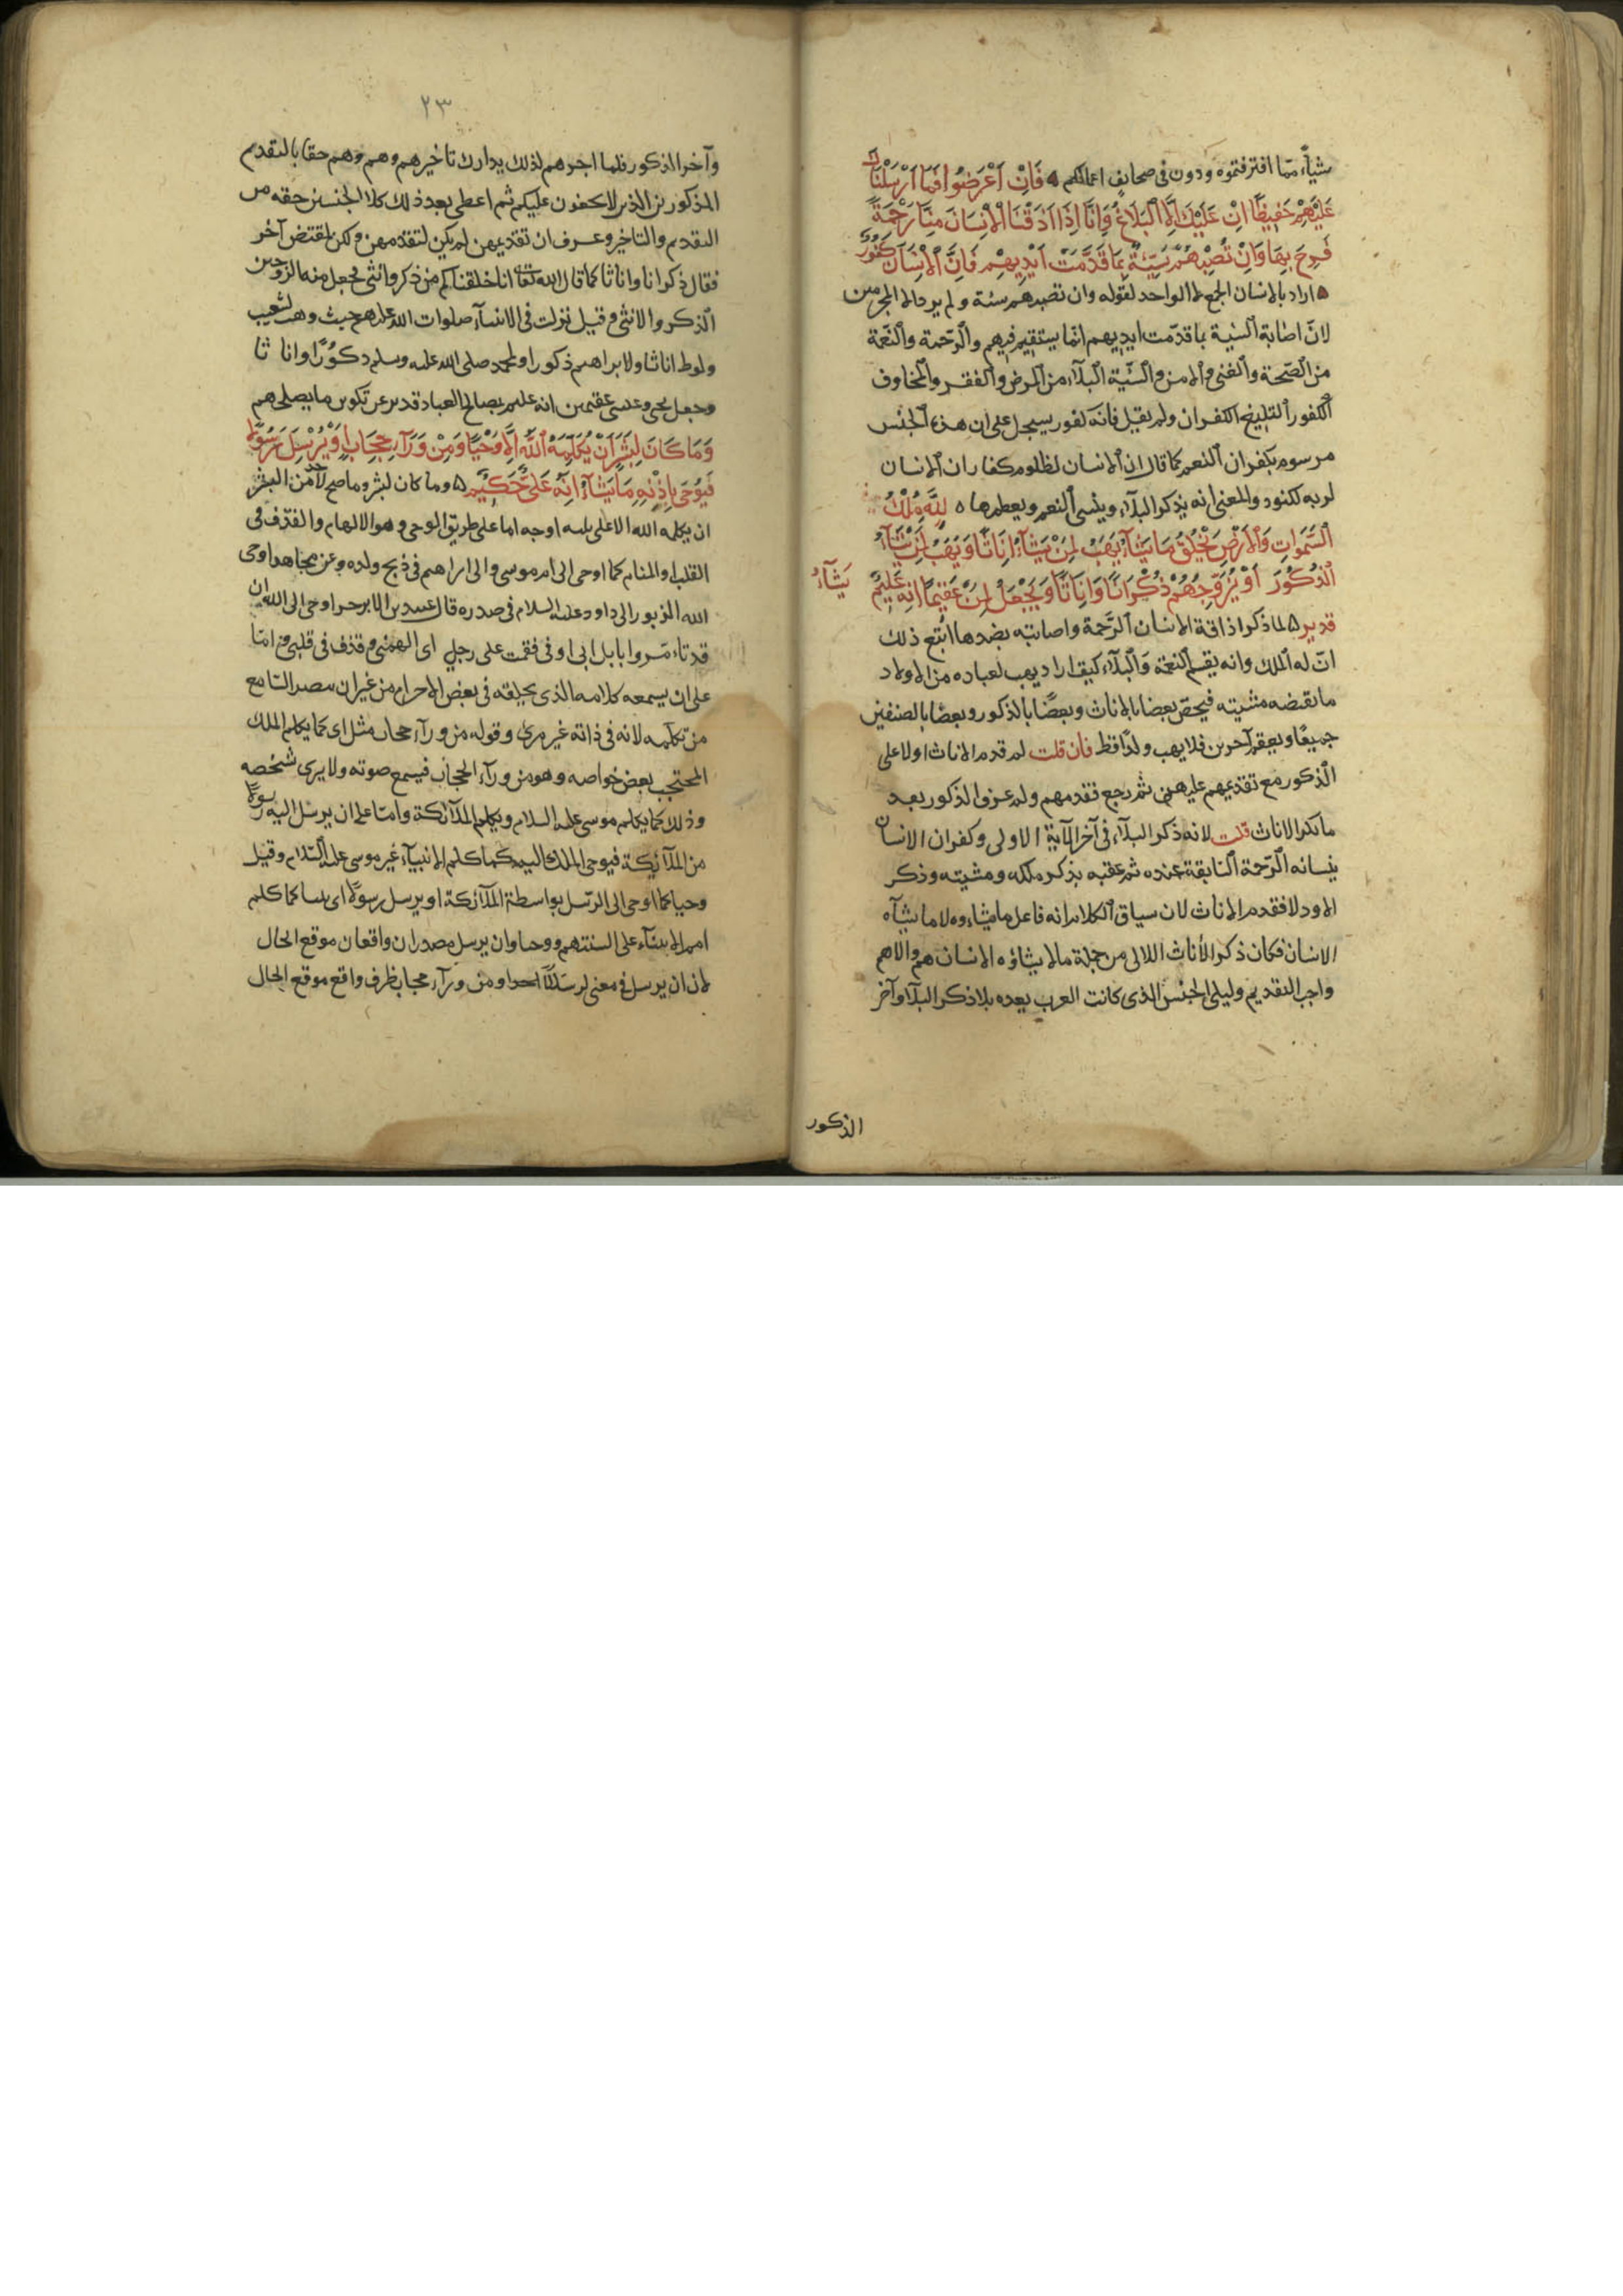 شيأ مما اقترفتموه ودون في صحايف اعمالكم ۵ فَاِنْ اَعْرَضُوا فَمَا اَرْسَلْنَاكَ
عَلَيْهِمْ حَفِيظًا اِنْ عَلَيْكَ اِلَّا الْبَلَاغُ وَاِنَّا اِذَا اَذَقْنَا الْاِنْسَانَ مِنَّا رَحْمَةً
فَرِحَ بِهَا وَاِنْ تُصِبْهُمْ سَيِّئَةٌ بِمَا قَدَّمَتْ اَيْدِيهِمْ فَاِنَّ الْاِنْسَانَ كَفُورٌ
۵ اراد بالانسان الجمع لا الواحد لقوله وان تصبهم سيئة ولم يرد الا المجرمين
لان اصابة السيئة بما قدمت ايديهم انما يستقيم فيهم والرحمة والنعمة
من الصحة والغنى والامن والسيئة البلآء من المرض والفقر والمخاوف
الكفور البليغ الكفران ولم يقل فانه كفور ليسجل على ان هذا الجنس
مرسوم بكفران النعم كما قال ان الانسان لظلوم كفار ان الانسان
لربه لكنود والمعنى انه يذكر البلآء وينسى النعم ويغمطها ۵ لِلَّهِ مُلْكُ
السَّمَوَاتِ وَالْاَرْضِ يَخْلُقُ مَا يَشَآءُ يَهَبُ لِمَنْ يَشَآءُ اِنَاثًا وَيَهَبُ لِمَنْ يَشَآءُ
الذُّكُورَ اَوْ يُزَوِّجُهُمْ ذُكْرَانًا وَاِنَاثًا وَيَجْعَلُ مَنْ عَقِيمًا اِنَّهُ عَلِيمٌ
يَشَآءُ
قدير ۵ لما ذكر اذاقة الانسان الرحمة واصابته بضدها اتبع ذلك
ان له الملك وانه يقسم النعمة والبلآء كيف اراد يهب لعباده من الاولاد
ما تقتضه مشيته فيخص بعضا بالاناث وبعضا بالذكور وبعضا بالصنفين
جميعا ويعقم آخرين فلا يهب ولدا قط فان قلت لم قدم الاناث اولا على
الذكور مع تقدمهم عليهن ثم رجع فقدمهم ولم عرف الذكور بعد
ما نكر الاناث قلت لانه ذكر البلآء في آخر الآية الاولى وكفران الانسان
بنسيانه الرحمة السابقة عنده ثم عقبه بذكر ملكه ومشيته وذكر
الاولاد فقدم الاناث لان سياق الكلام انه فاعل ما يشاءوه لا ما يشآه
الانسان فكان ذكر الأناث اللاتي من جملة ما لا يشاؤه الانسان اهم والاهم
واجب التقديم وليلي الجنس الذي كانت العرب يعده بلا ذكر البلآ وآخر
الذكور
٢٣
وآخر الذكور فلما اخرهم لذلك يدارك تاخيرهم وهم وهم حقا بالتقدم
المذكورين الذين لا يخفون عليكم ثم اعطى بعد ذلك كلا الجنسين حقه من
التقدم والتاخير وعرف ان تقديمهن لم يكن لتقدمهن ولكن لمقتض آخر
فقال ذكرانا واناثا كما قال الله تعا انا خلقناكم من ذكر وانثى فجعل منه الزوجين
الذكر والانثى وقيل نزلت في الانبيآء صلوات الله عليهم حيث وهب لشعيب
ولوط اناثا ولابراهيم ذكورا ولمحمد صلى الله عليه وسلم ذكورا واناثا
وجعل يحيى وعيسى عقيمين انه عليم بمصالح العباد قدير على تكوين ما يصلحهم
وَمَا كَانَ لِبَشَرٍ اَنْ يُكَلِّمَهُ اللهُ اِلَّا وَحْيًا وَمِنْ وَرَآءِ حِجَابٍ اَوْ يُرْسِلَ رَسُولًا
فَيُوحِيَ بِاِذْنِهِ مَا يَشَآءُ اِنَّهُ عَلِيٌّ حَكِيمٌ ۵ وما كان لبشر وما صح لاحد من البشر
ان يكلمه الله الا على ثلثه اوجه اما على طريق الوحي وهو الالهام والقذف في
القلب او المنام كما اوحى الى ام موسى والى ابراهيم في ذبح ولده وعن مجاهد اوحى
الله الزبور الى داود عليه السلام في صدره قال عبيد بن الابرص واوحى الى الله ان
قد تآمروا بابل ابى اوفى فقمت على رجل اى الهمنى وقذف في قلبى واما
على ان يسمعه كلامه الذي يخلقه في بعض الاجرام من غير ان يبصر السامع
من تكلمه لانه في ذاته غير مرى وقوله من ورآء حجاب مثل اى كما يكلم الملك
المحتجب بعض خواصه وهو من ورآء الحجاب فيسمع صوته ولا يرى شخصه
وذلك كما يكلم موسى عليه السلام ويكلم الملآئكة واما على ان يرسل اليه رسولا
من الملآئكة فيوحى الملك اليه كما كلم الانبيآء غير موسى عليه السلام وقيل
وحيا كما اوحى الى الرسل بواسطة الملآئكة او يرسل رسولا اى نبيا كما كلم
امم الانبيآء على السنتهم ووحيا وان يرسل مصدران واقعان موقع الحال
لان ان يرسل في معنى ارسالا ومن ورآء حجاب ظرف واقع موقع الحال